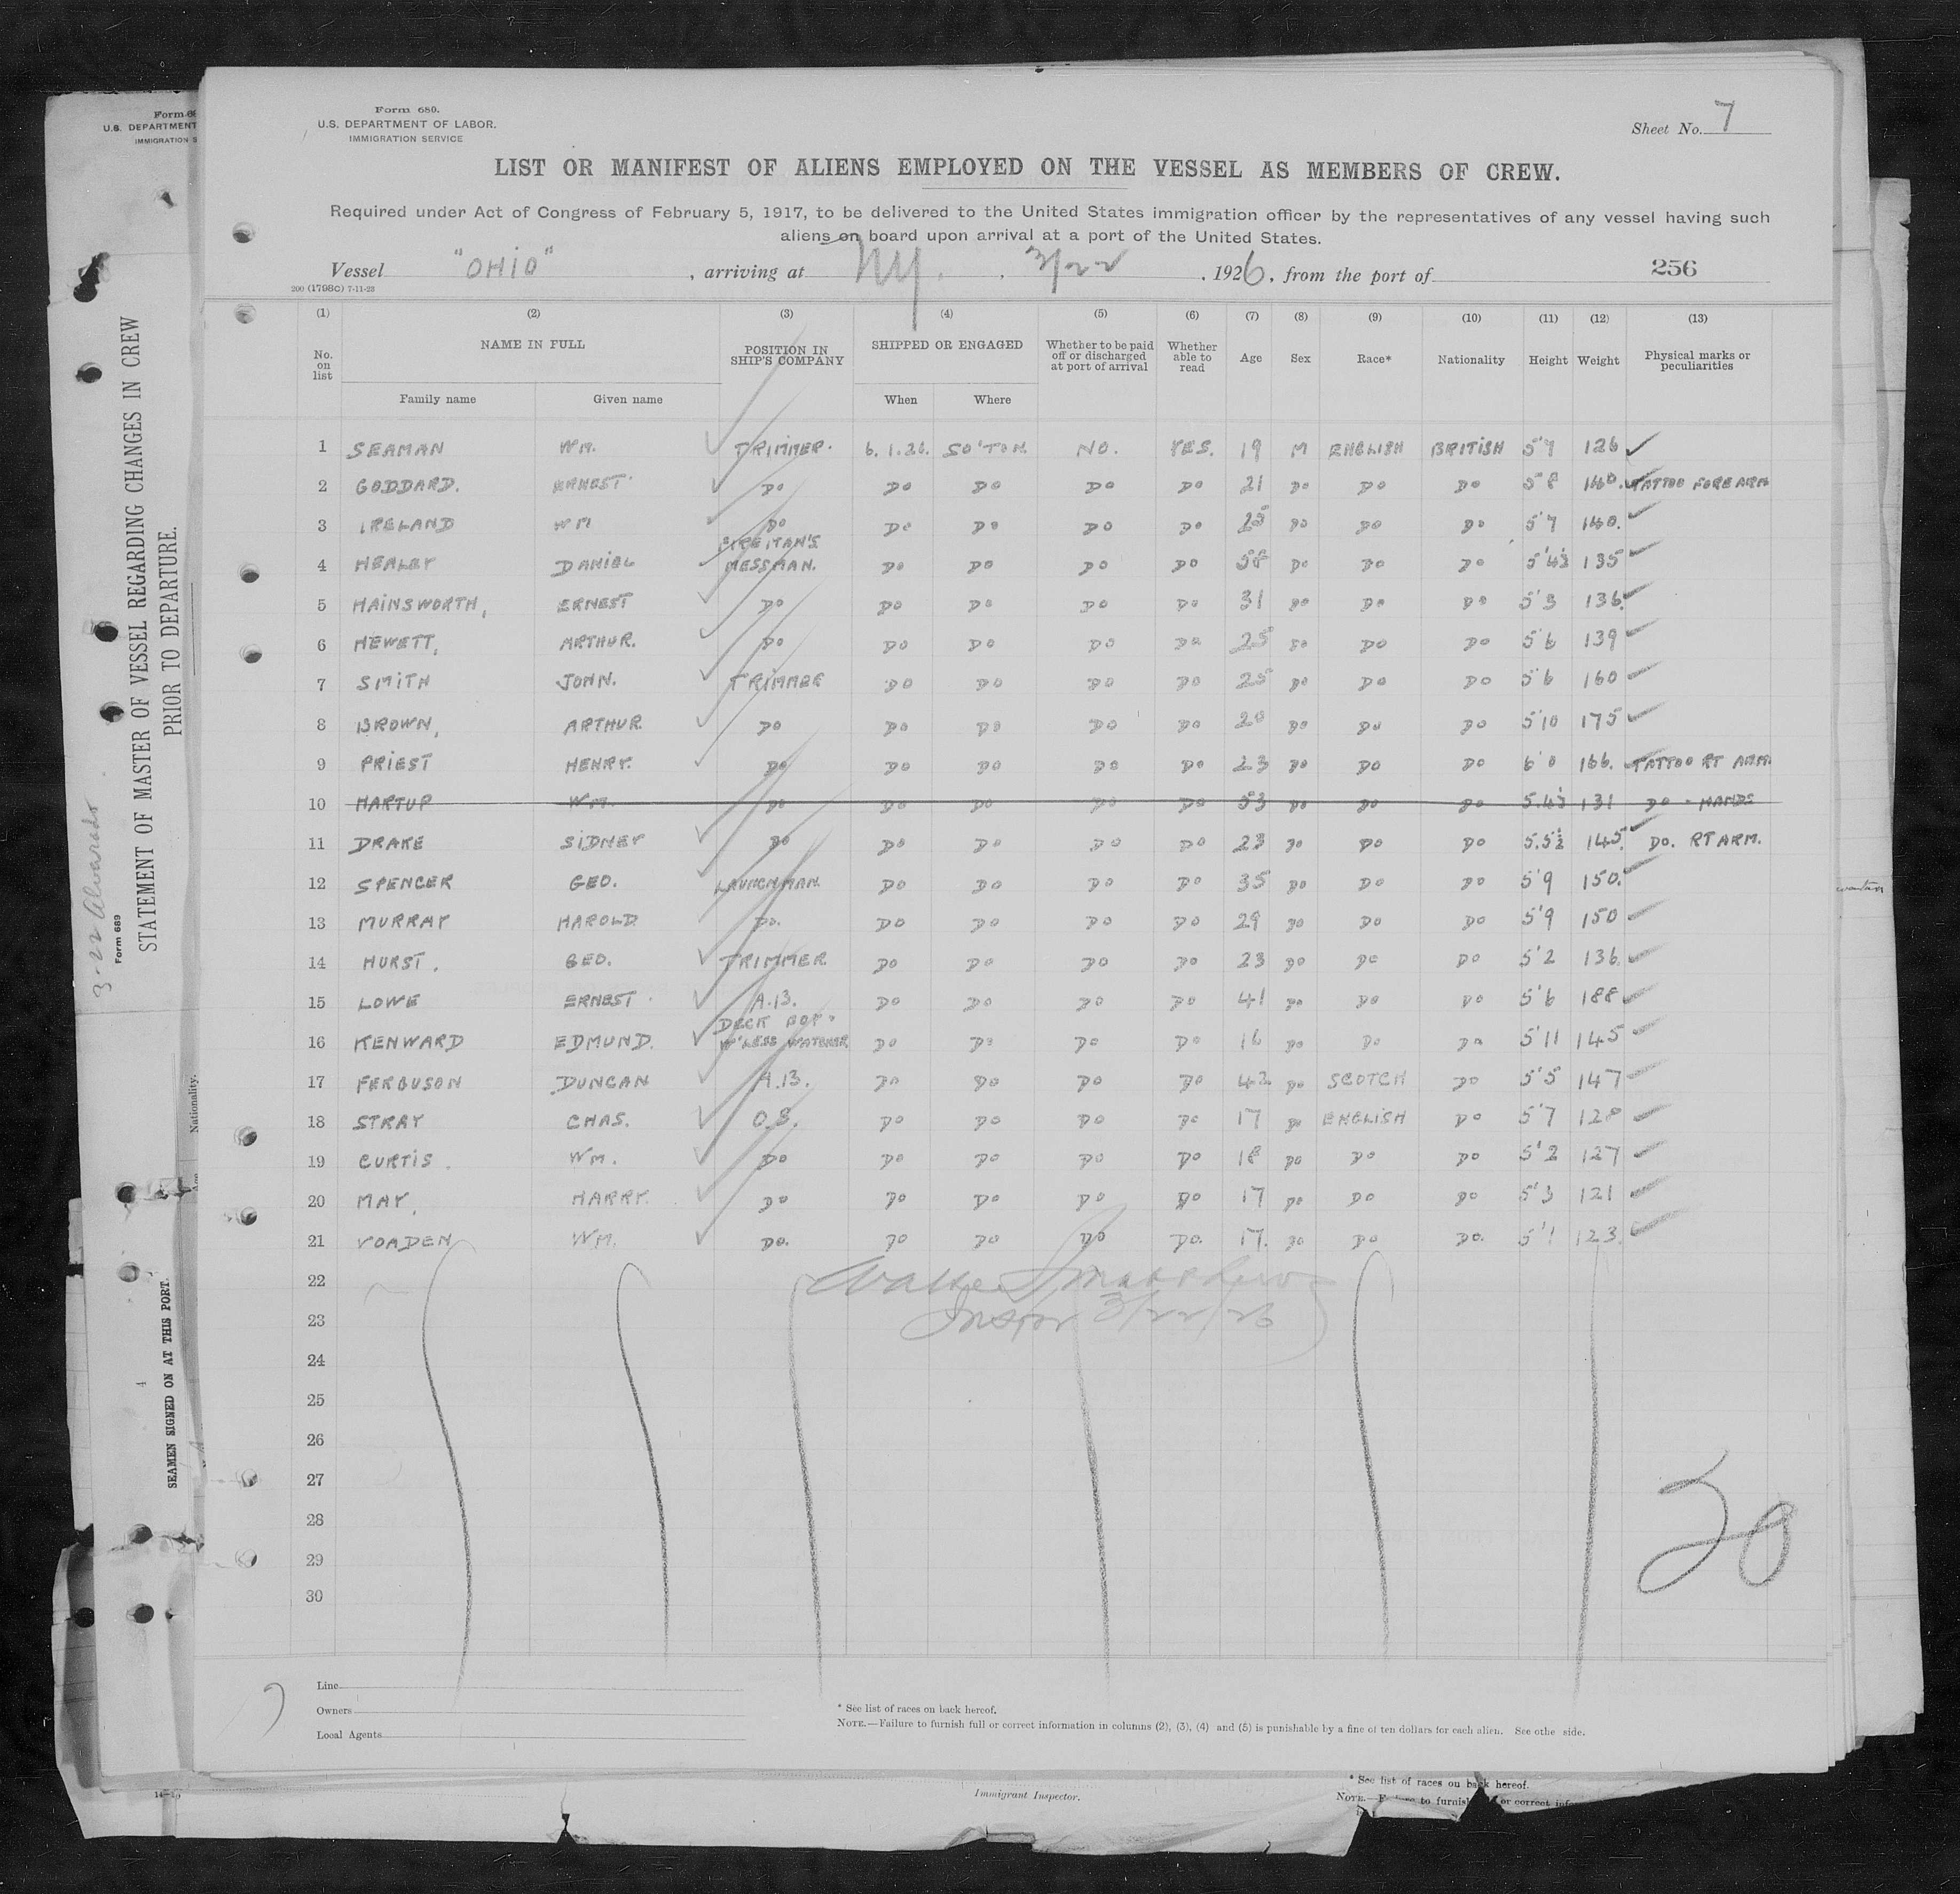 Form 680.
U.S. DEPARTMENT OF LABOR.
IMMIGRATION SERVICE
Sheet No. 7
LIST OR MANIFEST OF ALIENS EMPLOYED ON THE VESSEL AS MEMBERS OF CREW.
Required under Act of Congress of February 5, 1917, to be delivered to the United States immigration officer by the representatives of any vessel having such
aliens on board upon arrival at a port of the United States.
Vessel "OHIO", arriving at NY., 3/22, 1926, from the port of 256
200 (1798c) 7-11-23
(1) (2) (3) (4) (5) (6) (7) (8) (9) (10) (11) (12) (13)
No. on list NAME IN FULL POSITION IN SHIP'S COMPANY SHIPPED OR ENGAGED Whether to be paid off or discharged at port of arrival Whether able to read Age Sex Race* Nationality Height Weight Physical marks or peculiarities
Family name Given name When Where
1 SEAMAN WM. TRIMMER. 6.1.26. SO'TON. NO. YES. 19 M ENGLISH BRITISH 5'7 126
2 GODDARD. ERNEST DO DO DO DO DO 21 DO DO DO 5'8 140. TATTOO FOREARM
3 IRELAND WM DO DO DO DO DO 25 DO DO DO 5'7 140.
4 HEALEY DANIEL FIREMAN'S MESSMAN. DO DO DO DO 58 DO DO DO 5'4½ 135
5 HAINSWORTH, ERNEST DO DO DO DO DO 31 DO DO DO 5'3 136.
6 HEWETT, ARTHUR. DO DO DO DO DO 25 DO DO DO 5'6 139
7 SMITH JOHN. TRIMMER DO DO DO DO 25 DO DO DO 5'6 160
8 BROWN, ARTHUR DO DO DO DO DO 20 DO DO DO 5'10 175
9 PRIEST HENRY. DO DO DO DO DO 23 DO DO DO 6'0 166. TATTOO RT ARM.
10 HARTUP WM. DO DO DO DO DO 53 DO DO DO 5.4½ 131 DO - HANDS
11 DRAKE SIDNEY DO DO DO DO DO 23 DO DO DO 5.5½ 145. DO. RT ARM.
12 SPENCER GEO. LAUNCHMAN. DO DO DO DO 35 DO DO DO 5'9 150.
13 MURRAY HAROLD DO. DO DO DO DO 29 DO DO DO 5'9 150
14 HURST. GEO. TRIMMER DO DO DO DO 23 DO DO DO 5'2 136.
15 LOWE ERNEST. A.B. DO DO DO DO 41 DO DO DO 5'6 188
16 KENWARD EDMUND. DECK BOY. W'LESS WATCHER DO DO DO DO 16 DO DO DO 5'11 145
17 FERGUSON DUNCAN A.B. DO DO DO DO 42 DO SCOTCH DO 5'5 147
18 STRAY CHAS. O.S. DO DO DO DO 17 DO ENGLISH DO 5'7 128
19 CURTIS. WM. DO DO DO DO DO 18 DO DO DO 5'2 127
20 MAY, HARRY. DO DO DO DO DO 17 DO DO DO 5'3 121
21 VOADEN WM. DO. DO DO DO DO. 17. DO DO DO. 5'1 123.
22 Walter J Matthews
23 Inspr 3/22/26
24
25
26
27
28
29
30
20
Line
Owners
Local Agents
* See list of races on back hereof.
NOTE.—Failure to furnish full or correct information in columns (2), (3), (4) and (5) is punishable by a fine of ten dollars for each alien. See othe side.
Form 68
U.S. DEPARTMENT
IMMIGRATION S
STATEMENT OF MASTER OF VESSEL REGARDING CHANGES IN CREW
PRIOR TO DEPARTURE.
Form 689
3-22 Alvarado
Nationality.
Age
SEAMEN SIGNED ON AT THIS PORT.
4
Immigrant Inspector.
* See list of races on back hereof.
NOTE.—F to furnish or correct